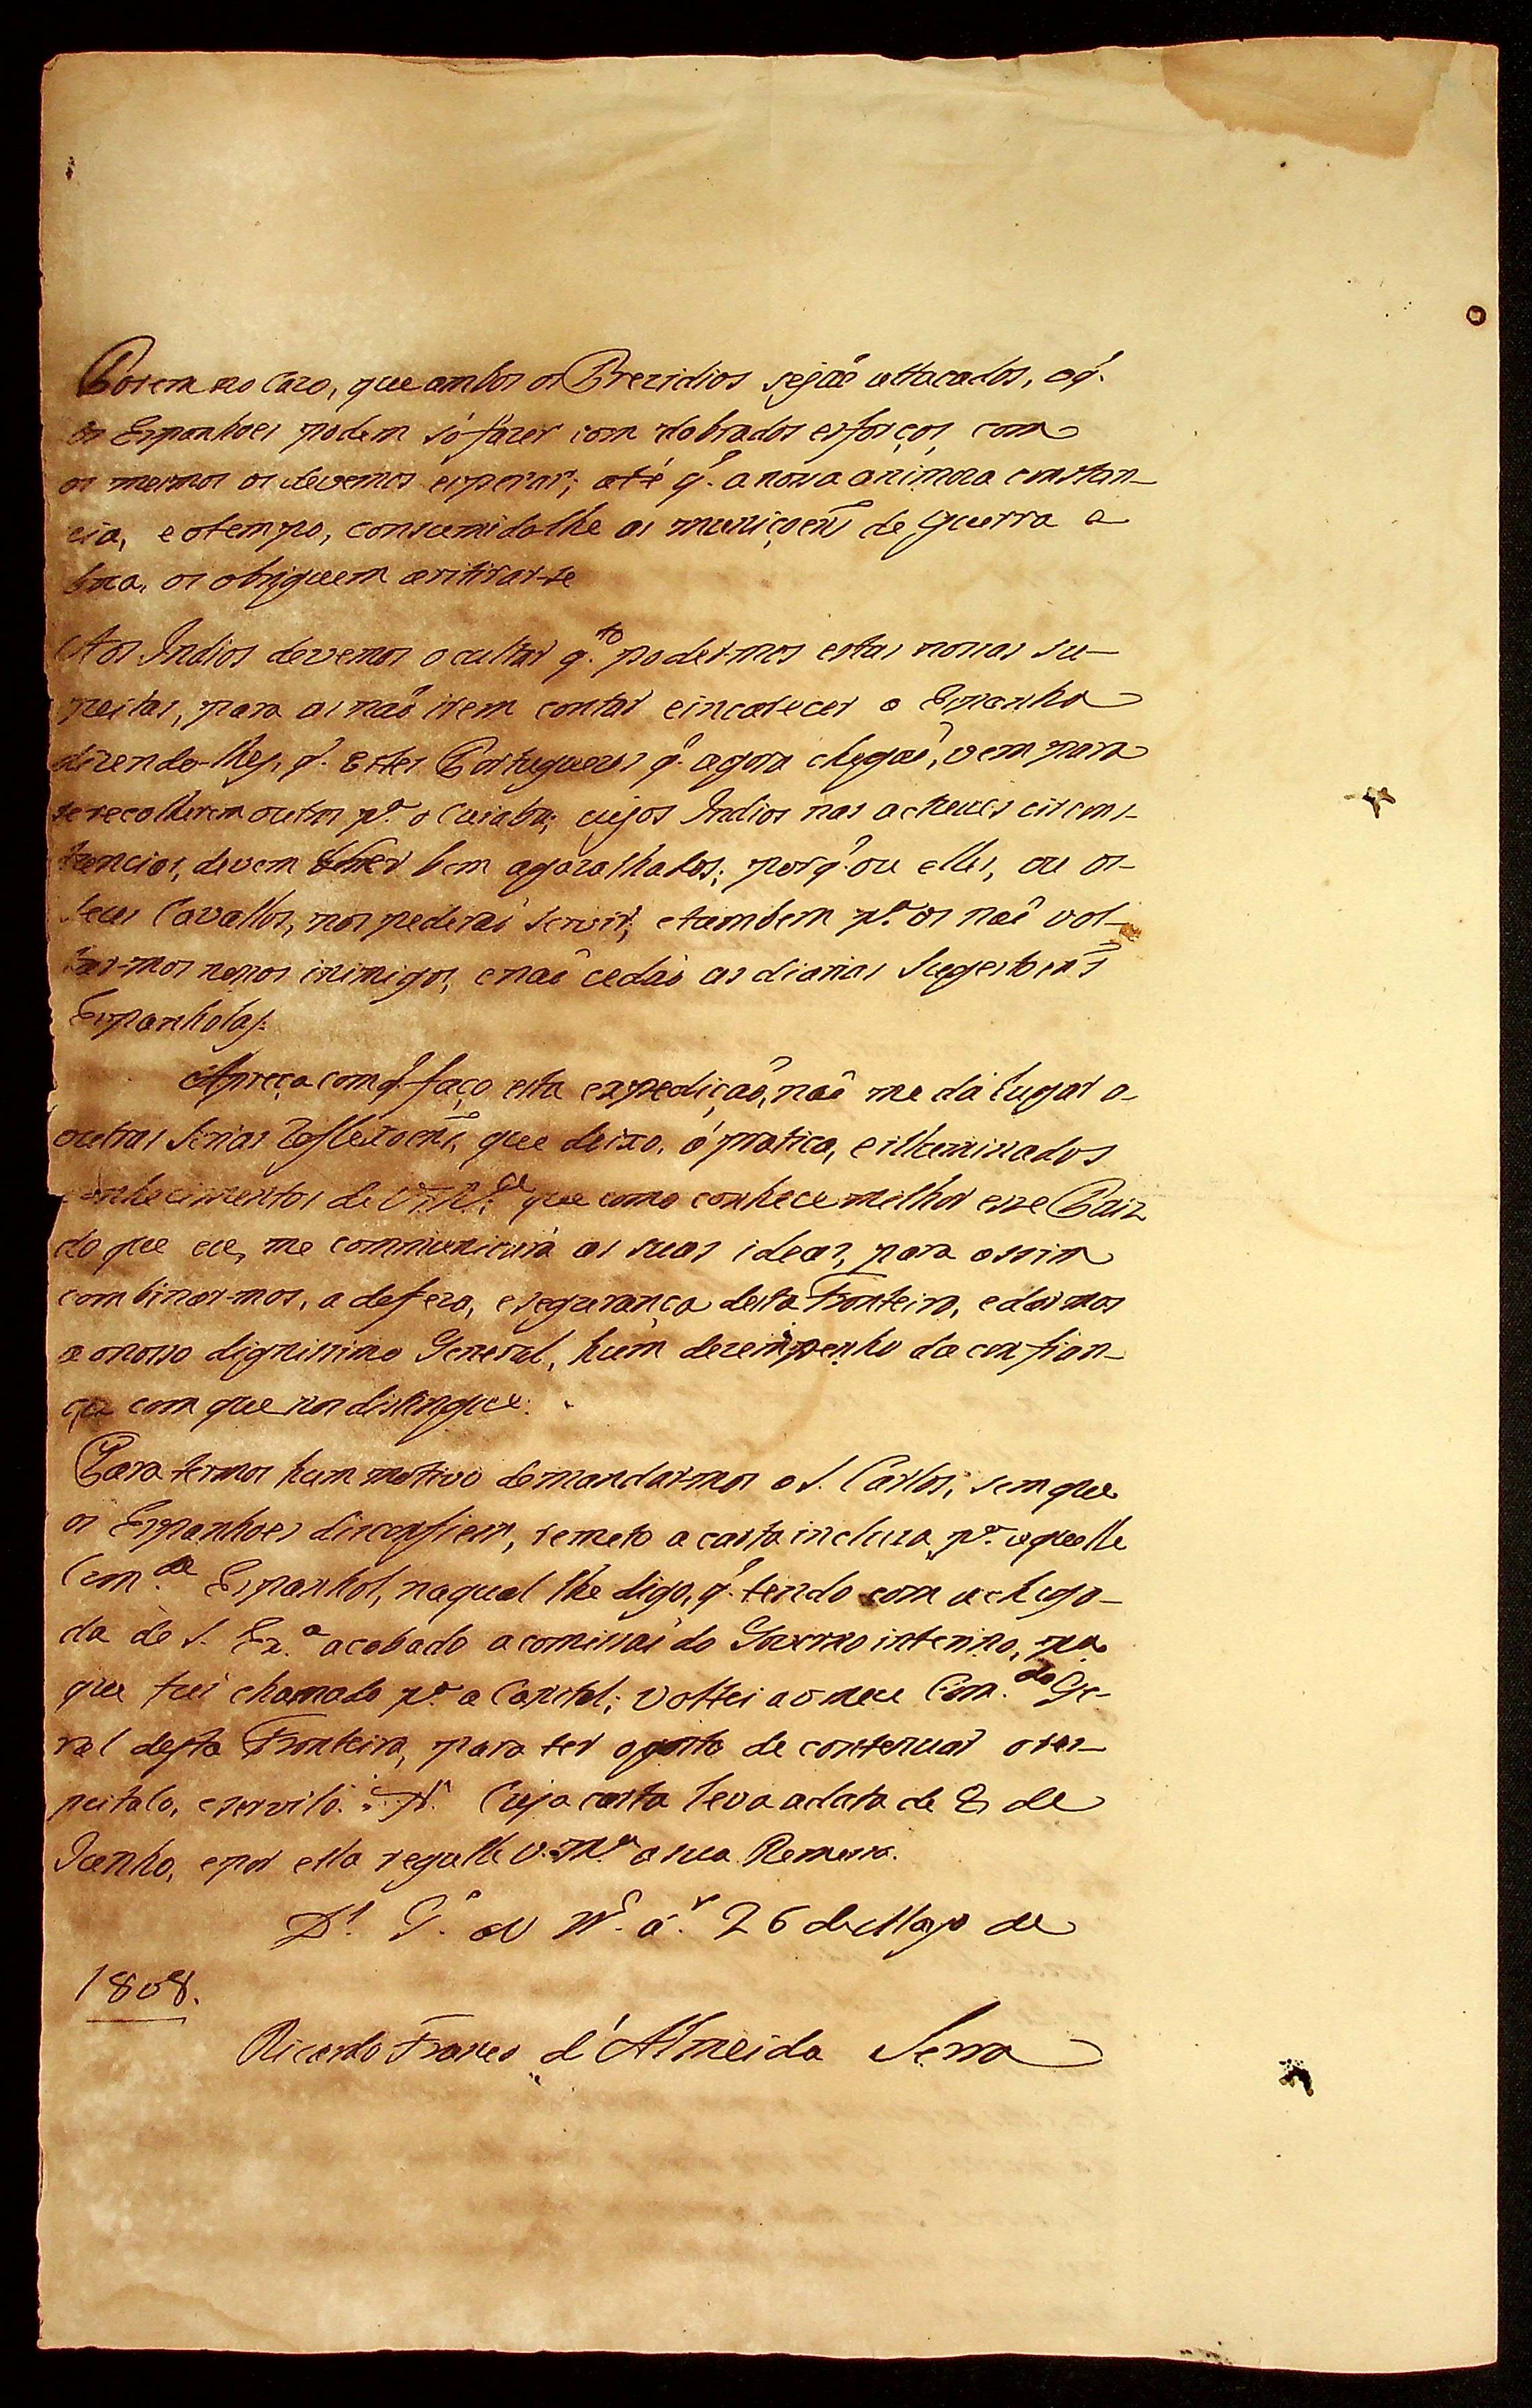 Porem no Cazo, que ambos os Prezidios sejaõ attacados, o q̃.
os Espanhoes podem só fazer com dobrados esforços, com
os mesmos os devemos esperar; até q̃. a nosa animoza constan-
cia, e otempo, consumidolhe as muniçoens de guerra e
boca, os obriguem aritirar-se
Aos Indios devemos ocultar q.to poder-mos estas nossas su-
peitas, para as naõ irem contar eincarecer a Espanha
dizendo-lhes, q̃. Estes Portuguezes q̃. agora chegaõ, vem para
serecolherem outos p.a o Cuiabá; cujos Indios nas actuaes circuns-
tancias, devem ser bem agazalhados; porq̃. ou elles, ou os-
seus Cavallos, nos poderaõ servir; etambem p.a os naõ vol-
tar-mos nosos inimigos, enaõ cedaõ as diarias Sugestoens
Espanholas:
Apreça com q̃. faço esta expediçaõ, naõ me dá lugar a
outras serias Reflexoens, que deixo, á pratica, eilluminados
conhecimentos de Vm.ce que como conhece melhor esse Paiz
do que eu, me communicará as suas ideas, para assim
combinar-mos, a defeza, e segurança desta Fronteira, edarmos
a onosso dignissimo General, hum dezempenho da confian-
ça com que nos distingue.
Para termos hum motivo demandar-mos a S. Carlos, sem que
os Espanhoes disconfiem, remeto a carta incluza p.a aquelle
Com.de Espanhol, naqual lhe digo, q̃. tendo com a chega-
da de S. Ex.a acabado a comissaõ do Governo interino, pa
que fui chamado p.a a Capital; voltei a o meu Com.do Ge-
ral desta Fronteira, para ter ogosto de contenuar o res-
peitalo, eservilo. Cuja carta leva adata de 8 de
Junho, epor ella regulle V.M.ce a sua Remessa.
D.s G.e a V. M.ce a.s 26 de Mayo de
1808.
Ricardo Franco d'Almeida Serra